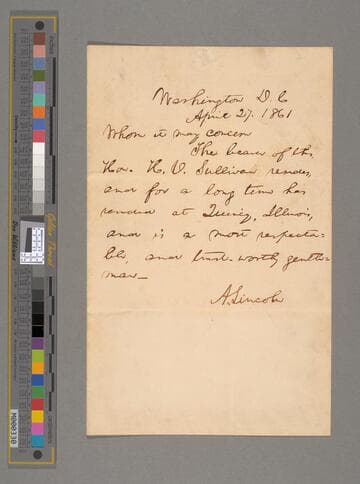 Washington D.C
April 27. 1861
Whom it may concern
The bearer of this
Hon. H. V. Sullivan resides,
and for a long time has
resided at Quincy, Illinois,
and is a most respecta-
ble, and trust-worthy gentle-
man—
A. Lincoln